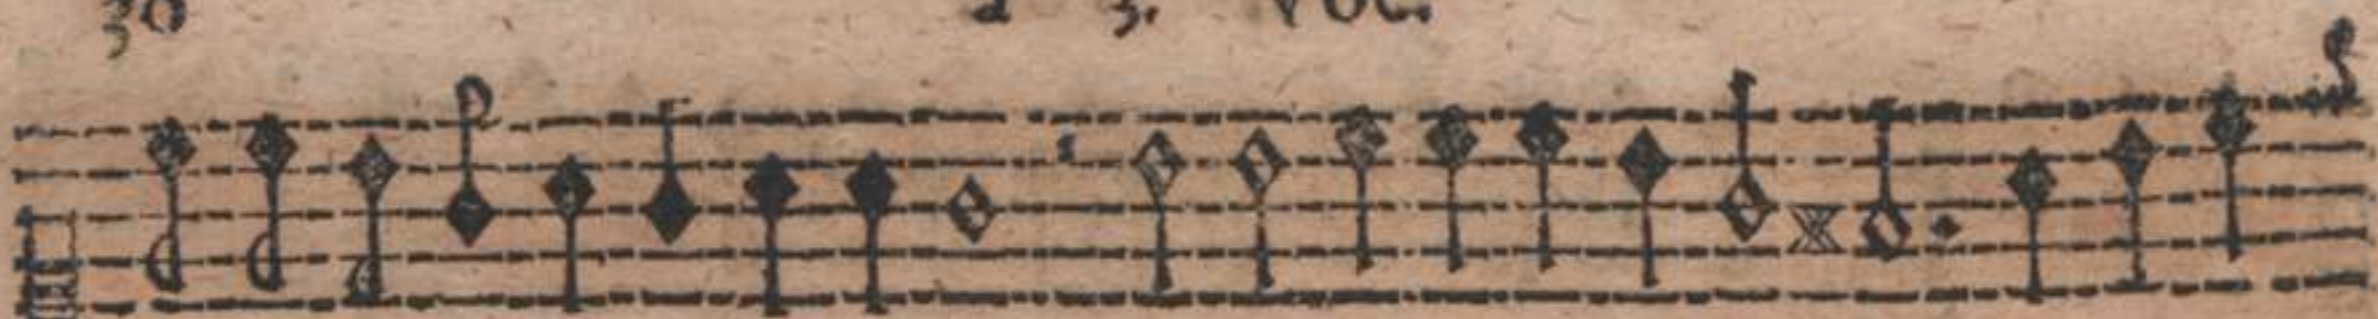 30 a 3. Voc.